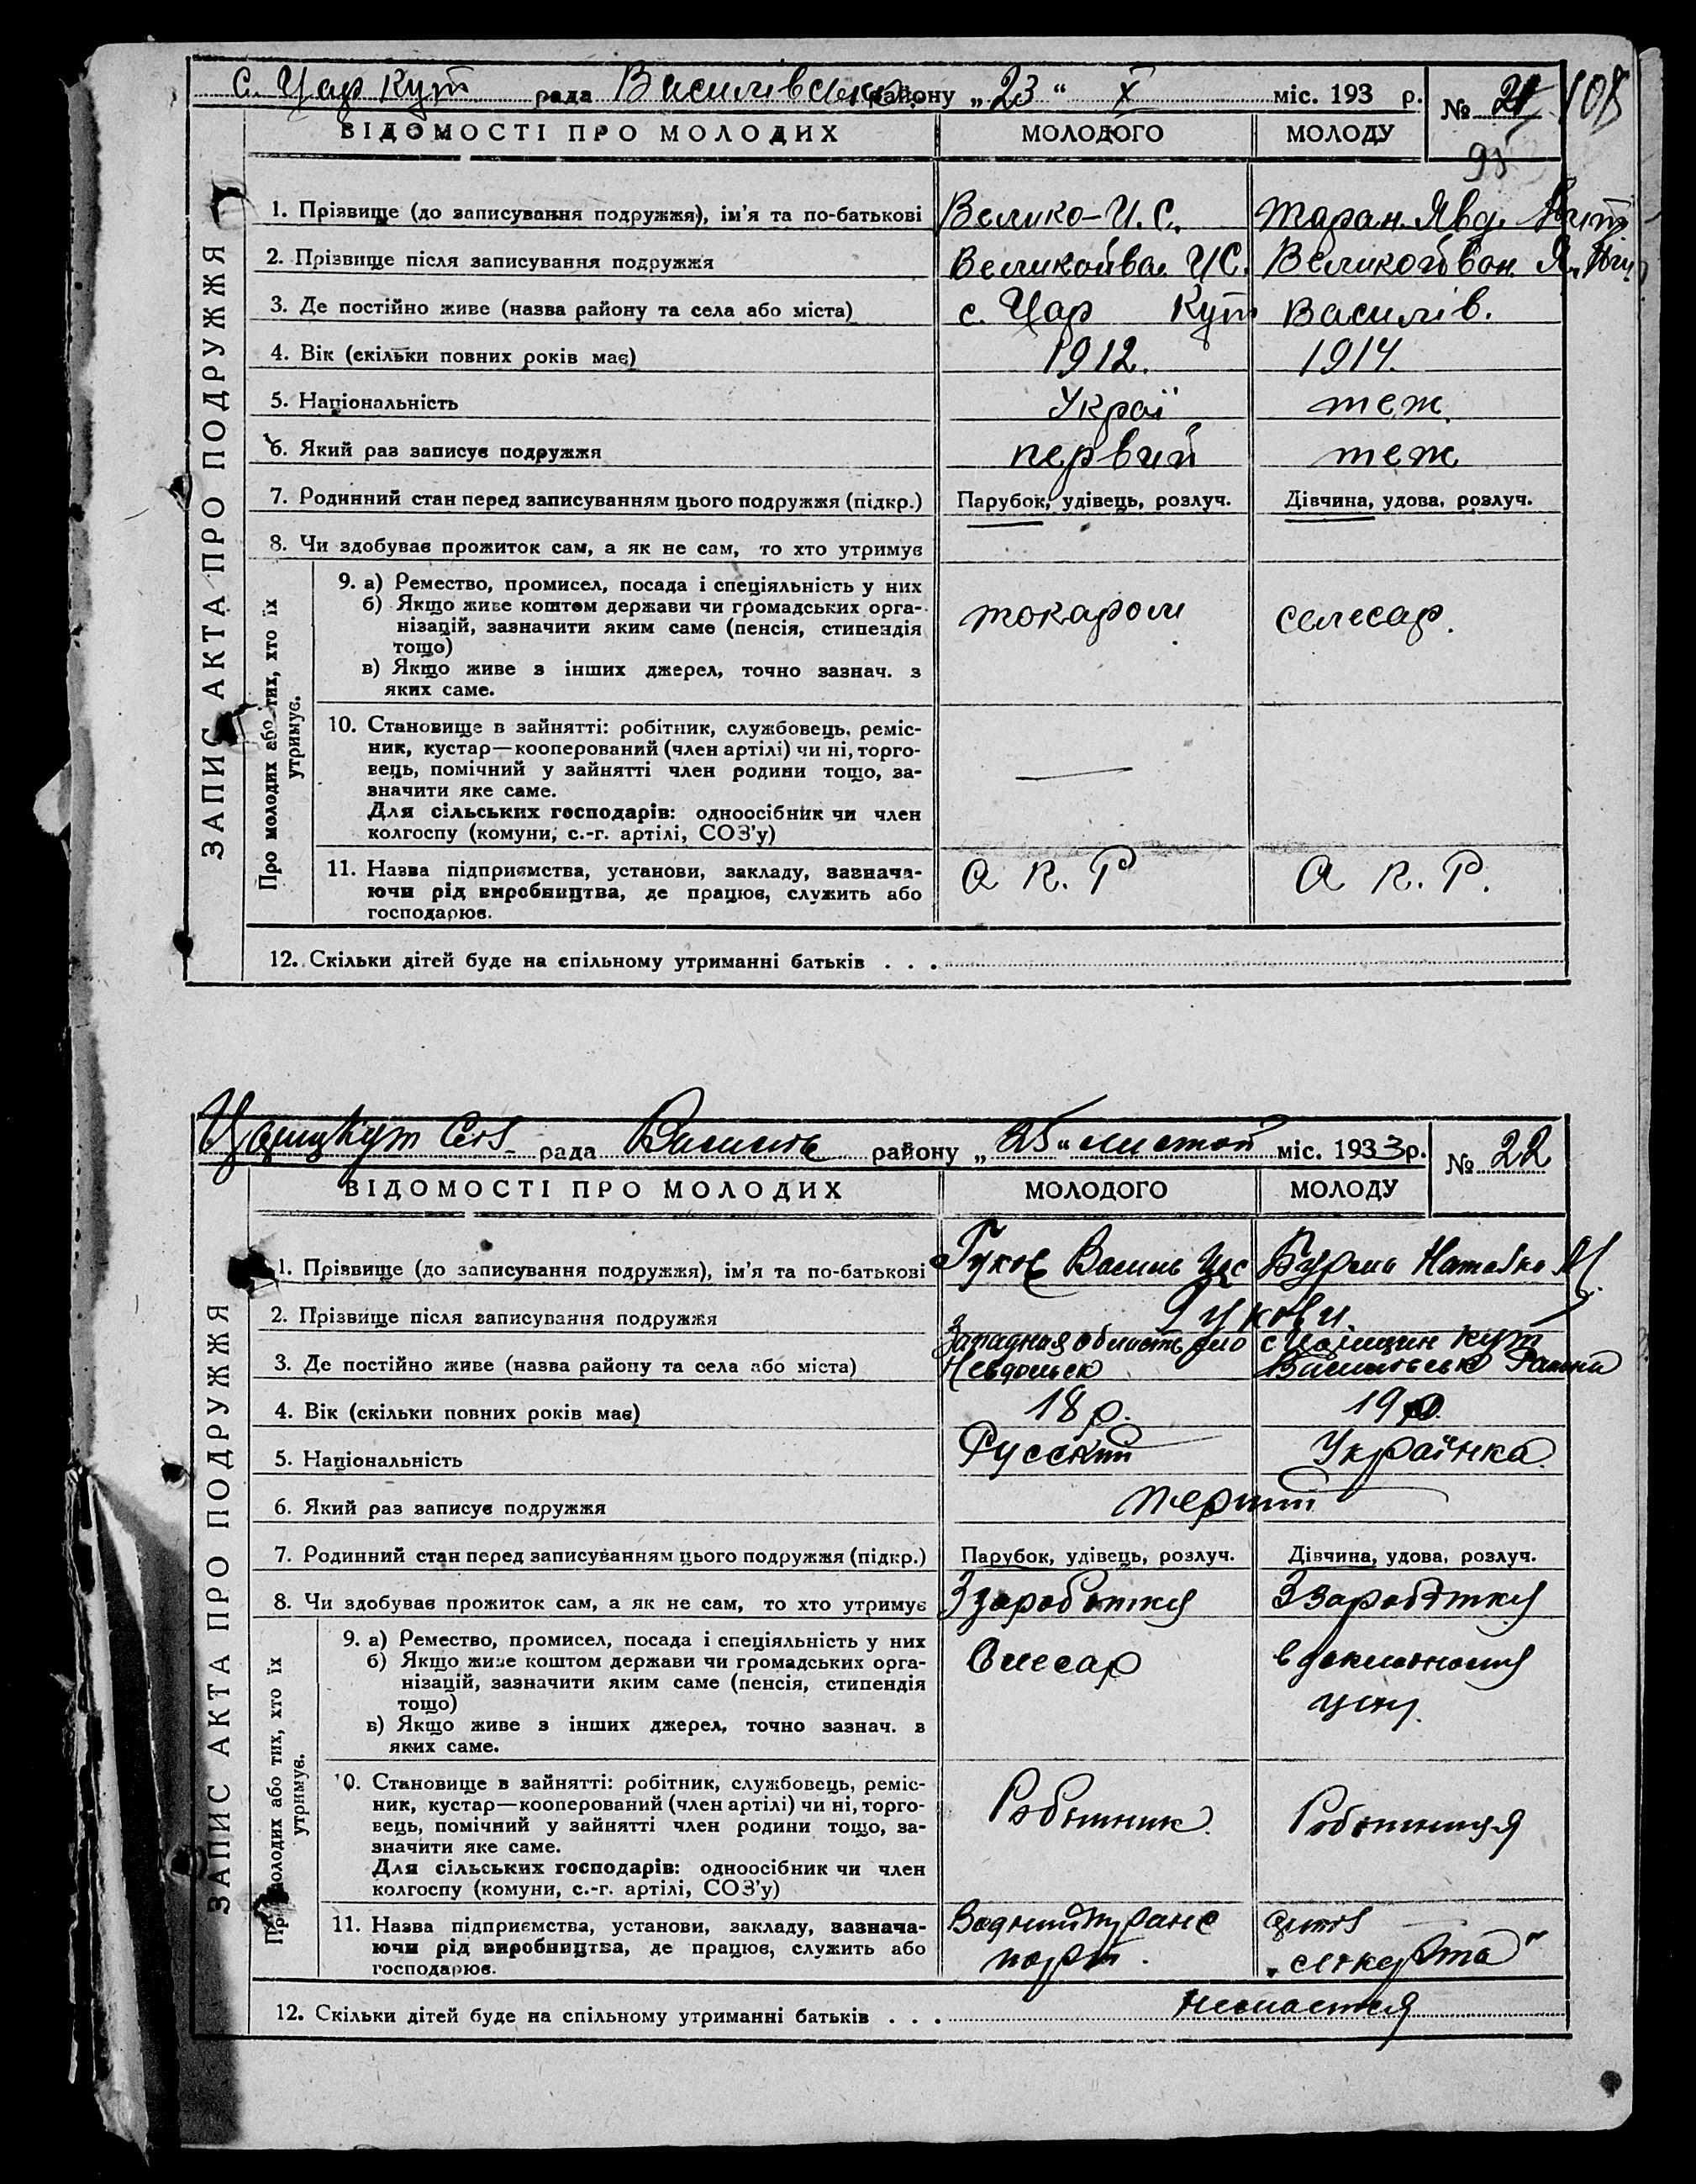 с. Цар Кут рада Василівського району „23“ X міс. 193 р. № 21 108
ВІДОМОСТІ ПРО МОЛОДИХ МОЛОДОГО МОЛОДУ
95
ЗАПИС АКТА ПРО ПОДРУЖЖЯ
1. Прізвище (до записування подружжя), ім'я та по-батькові Велико-И.С. Таран Явд.
2. Прізвище після записування подружжя
3. Де постійно живе (назва району та села або міста) с. Цар Кут Василів.
4. Вік (скільки повних років має) 1912. 1914.
5. Національність Украї теж.
6. Який раз записує подружжя первий теж
7. Родинний стан перед записуванням цього подружжя (підкр.) Парубок, удівець, розлуч. Дівчина, удова, розлуч.
8. Чи здобуває прожиток сам, а як не сам, то хто утримує
Про молодих або тих, хто їх
утримує.
9. а) Ремество, промисел, посада і спеціяльність у них
б) Якщо живе коштом держави чи громадських орга-
нізацій, зазначити яким саме (пенсія, стипендія токаром слесар.
тощо)
в) Якщо живе з інших джерел, точно зазнач. з
яких саме.
10. Становище в зайнятті: робітник, службовець, реміс-
ник, кустар—кооперований (член артілі) чи ні, торго-
вець, помічний у зайнятті член родини тощо, за- —
значити яке саме.
Для сільських господарів: одноосібник чи член
колгоспу (комуни, с.-г. артілі, СОЗ'у)
11. Назва підприємства, установи, закладу, зазнача- А К. Р А К. Р.
ючи рід виробництва, де працює, служить або
господарює.
12. Скільки дітей буде на спільному утриманні батьків . . .
рада району „25“ листоп міс. 1933 р. № 22
ВІДОМОСТІ ПРО МОЛОДИХ МОЛОДОГО МОЛОДУ
ЗАПИС АКТА ПРО ПОДРУЖЖЯ
1. Прізвище (до записування подружжя), ім'я та по-батькові Гуков Василь
2. Прізвище після записування подружжя Гукови.
3. Де постійно живе (назва району та села або міста) Западная область с Царицин Кут
4. Вік (скільки повних років має) 18 р. 19 р.
5. Національність Русский Українка.
6. Який раз записує подружжя перший
7. Родинний стан перед записуванням цього подружжя (підкр.) Парубок, удівець, розлуч. Дівчина, удова, розлуч.
8. Чи здобуває прожиток сам, а як не сам, то хто утримує З заробітку З заробітку
Про молодих або тих, хто їх
утримує.
9. а) Ремество, промисел, посада і спеціяльність у них
б) Якщо живе коштом держави чи громадських орга- Слесар
нізацій, зазначити яким саме (пенсія, стипендія
тощо) цеху.
в) Якщо живе з інших джерел, точно зазнач. в
яких саме.
10. Становище в зайнятті: робітник, службовець, реміс-
ник, кустар—кооперований (член артілі) чи ні, торго- Робітник. Робітниця
вець, помічний у зайнятті член родини тощо, за-
значити яке саме.
Для сільських господарів: одноосібник чи член
колгоспу (комуни, с.-г. артілі, СОЗ'у)
11. Назва підприємства, установи, закладу, зазнача- Водний транс
ючи рід виробництва, де працює, служить або порт.
господарює.
12. Скільки дітей буде на спільному утриманні батьків . . .